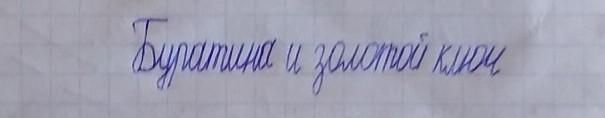 Буратина и золотой ключ